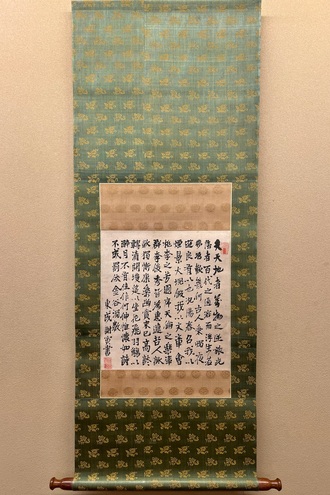 夫天地者萬物之逆旅光
陰者百代之過客而浮生若
夢為歡幾何古人秉燭夜
遊良有以也況陽春召我以
煙景大塊假我以文章會
桃李之芳園序天倫之樂事
群季俊秀皆為惠連吾人詠
歌獨慚康樂幽賞未已高談
轉清開瓊筵以坐花飛羽觴
醉月不有佳作何伸雅懷如詩
不成罰依金谷酒數
東成謝寅書